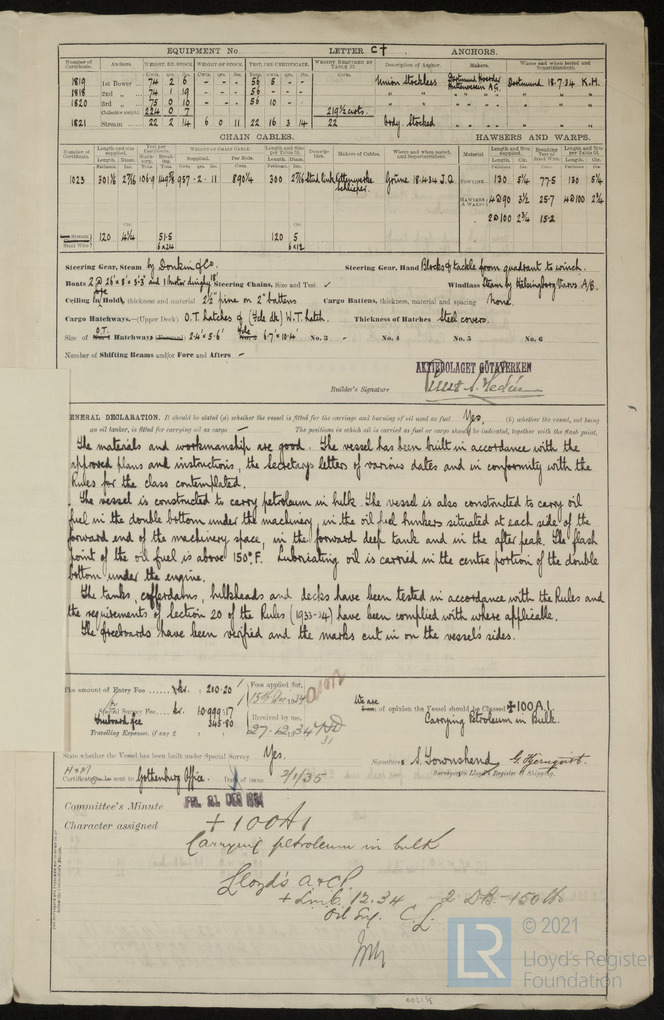 EQUIPMENT No LETTER C† ANCHORS.
Number of Certificate. Anchors. WEIGHT EX. STOCK. WEIGHT OF STOCK. TEST, PER CERTIFICATE. WEIGHT REQUIRED BY TABLE 53. Description of Anchor. Makers. Where and when tested and Superintendent.
1819 1st Bower 74 2 6 - - - 56 5 - Union Stockless Dortmund 18.7.34 K.H.
1818 2nd " 74 1 19 - - - 56 - -
1820 3rd " 75 0 10 - - - 56 10 -
Collective weight 224 0 7 219½ cwts.
1821 Stream 22 2 14 6 0 11 22 16 3 14 22 Stocked
CHAIN CABLES. HAWSERS AND WARPS.
1023 957 . 2 . 11 890¼ 300 2 7/16 Stud link Grüne 18.4.34 J.Q. TOWLINE 130 5¼ 77.5 130 5¼
HAWSERS & WARPS 4@90 3½ 25.7 4@100 2¾
2@100 2¾ 15.2
120 4¼ 51.5 120 5
6x24 6x12
Steering Gear, Steam by Donkin & Co. Steering Gear, Hand Blocks & tackle from quadrant to winch.
Boats 2 @ 26' x 8' x 3.3' and 1 motor dinghy 18' Steering Chains, Size and Test ✓ Windlass Steam by Helsingborg Varvs A/B.
Ceiling in Hold, thickness and material 2½" pine on 2" battens Cargo Battens, thickness, material and spacing None.
Cargo Hatchways.—(Upper Deck) O.T. hatches & (Fcle dk) W.T. hatch. Thickness of Hatches Steel covers.
Size of O.T. Hatchways 2.4' x 5.6' Fcle 6.7' x 10.4' No. 3 - No. 4 No. 5 No. 6
Number of Shifting Beams and/or Fore and Afters —
AKTIEBOLAGET GÖTAVERKEN
Builder's Signature
ENERAL DECLARATION. It should be stated (a) whether the vessel is fitted for the carriage and burning of oil used as fuel Yes, (b) whether the vessel, not being
an oil tanker, is fitted for carrying oil as cargo — The positions in which oil is carried as fuel or cargo should be indicated, together with the flash point.
The materials and workmanship are good. The vessel has been built in accordance with the
approved plans and instructions, the Secretarys letters of various dates and in conformity with the
Rules for the class contemplated.
The vessel is constructed to carry petroleum in bulk. The vessel is also constructed to carry oil
fuel in the double bottom under the machinery, in the oil fuel bunkers situated at each side of the
forward end of the machinery space, in the forward deep tank and in the after peak. The flash
point of the oil fuel is above 150°F. Lubricating oil is carried in the centre portion of the double
bottom under the engine.
The tanks, cofferdams, bulkheads and decks have been tested in accordance with the Rules and
the requirements of Section 20 of the Rules (1933-34) have been complied with where applicable.
The freeboards have been verified and the marks cut in on the vessel's sides.
The amount of Entry Fee kr. 200.20 Fees applied for,
15th Dec. 1934
Special Survey Fee kr. 10.999.17 Received by me,
Freeboard fee 345.80 27.12.34
Travelling Expenses, if any £
We are of opinion the Vessel should be Classed ✠100A1.
Carrying Petroleum in Bulk.
State whether the Vessel has been built under Special Survey Yes. Signature S. Townshend, G. Hjernqvist.
Surveyors to Lloyd's Register of Shipping.
Certificate to be sent to Gothenburg Office. Date of issue 2/1/35
Committee's Minute FRI. 21 DEC 1934
Character assigned + 100A1
Carrying petroleum in bulk
Lloyd's A & CP.
+ LMC 12.34 2 DB - 150 lb
Oil Eng. C.L.
LR © 2021
Lloyd's Register
Foundation